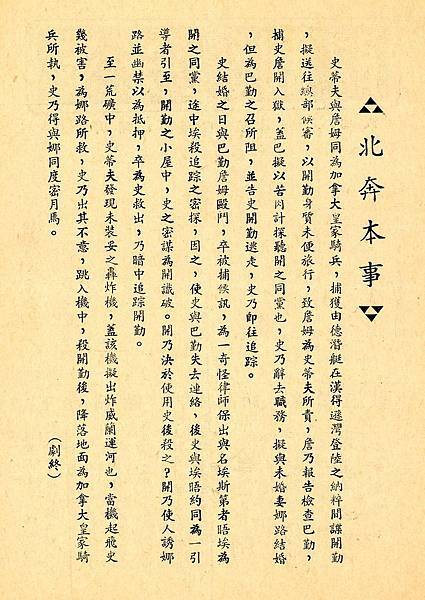 北奔本事
史蒂夫與詹姆同為加拿大皇家騎兵,捕獲由德潛艇在漢得遜灣登陸之納粹間諜開勤
,擬送往總部候審,以開勤身質未便旅行,致詹姆為史蒂夫所責,詹乃報告檢查巴勤,
捕史詹開入獄,蓋巴擬以苦肉計探聽開之同黨也,史乃辭去職務,擬與未婚妻娜路結婚
,但為巴勤之召所阻,並告史開勤逃走,史乃即往追踪。
史結婚之日與巴勤詹姆毆鬥,卒被捕候訊,為一奇怪律師保出與名埃斯第者晤埃為
開之同黨,途中埃殺追踪之密探,因之,使史與巴勤失去連絡,後史與埃晤約同為一引
導者引至,開勤之小屋中,史之密謀為開識破。開乃決於使用史後殺之?開乃使人誘娜
路並幽禁以為抵押,卒為史救出,乃暗中追踪開勤。
至一荒礦中,史蒂夫發現未裝妥之轟炸機,蓋該機擬出炸威蘭運河也,當機起飛史
幾被害,為娜路所救,史乃出其不意,跳入機中,殺開勤後,降落地面為加拿大皇家騎
兵所執,史乃得與娜同度密月焉。
(劇終)